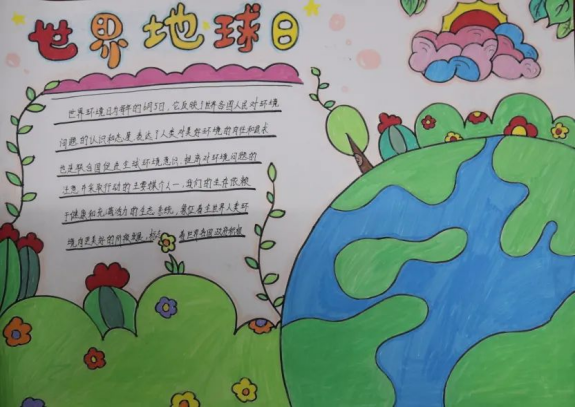 世界地球日
世界环境日为每年的6月5日，它反映了世界各国人民对环境
问题的认识和态度，表达了人类对美好环境的向往和追求
也是联合国促进全球环境意识、提高对环境问题的
注意并采取行动的主要媒介之一，我们的生存依赖
于健康和充满活力的生态系统，
境向更美好的阶段发展，
世界各国政府积极